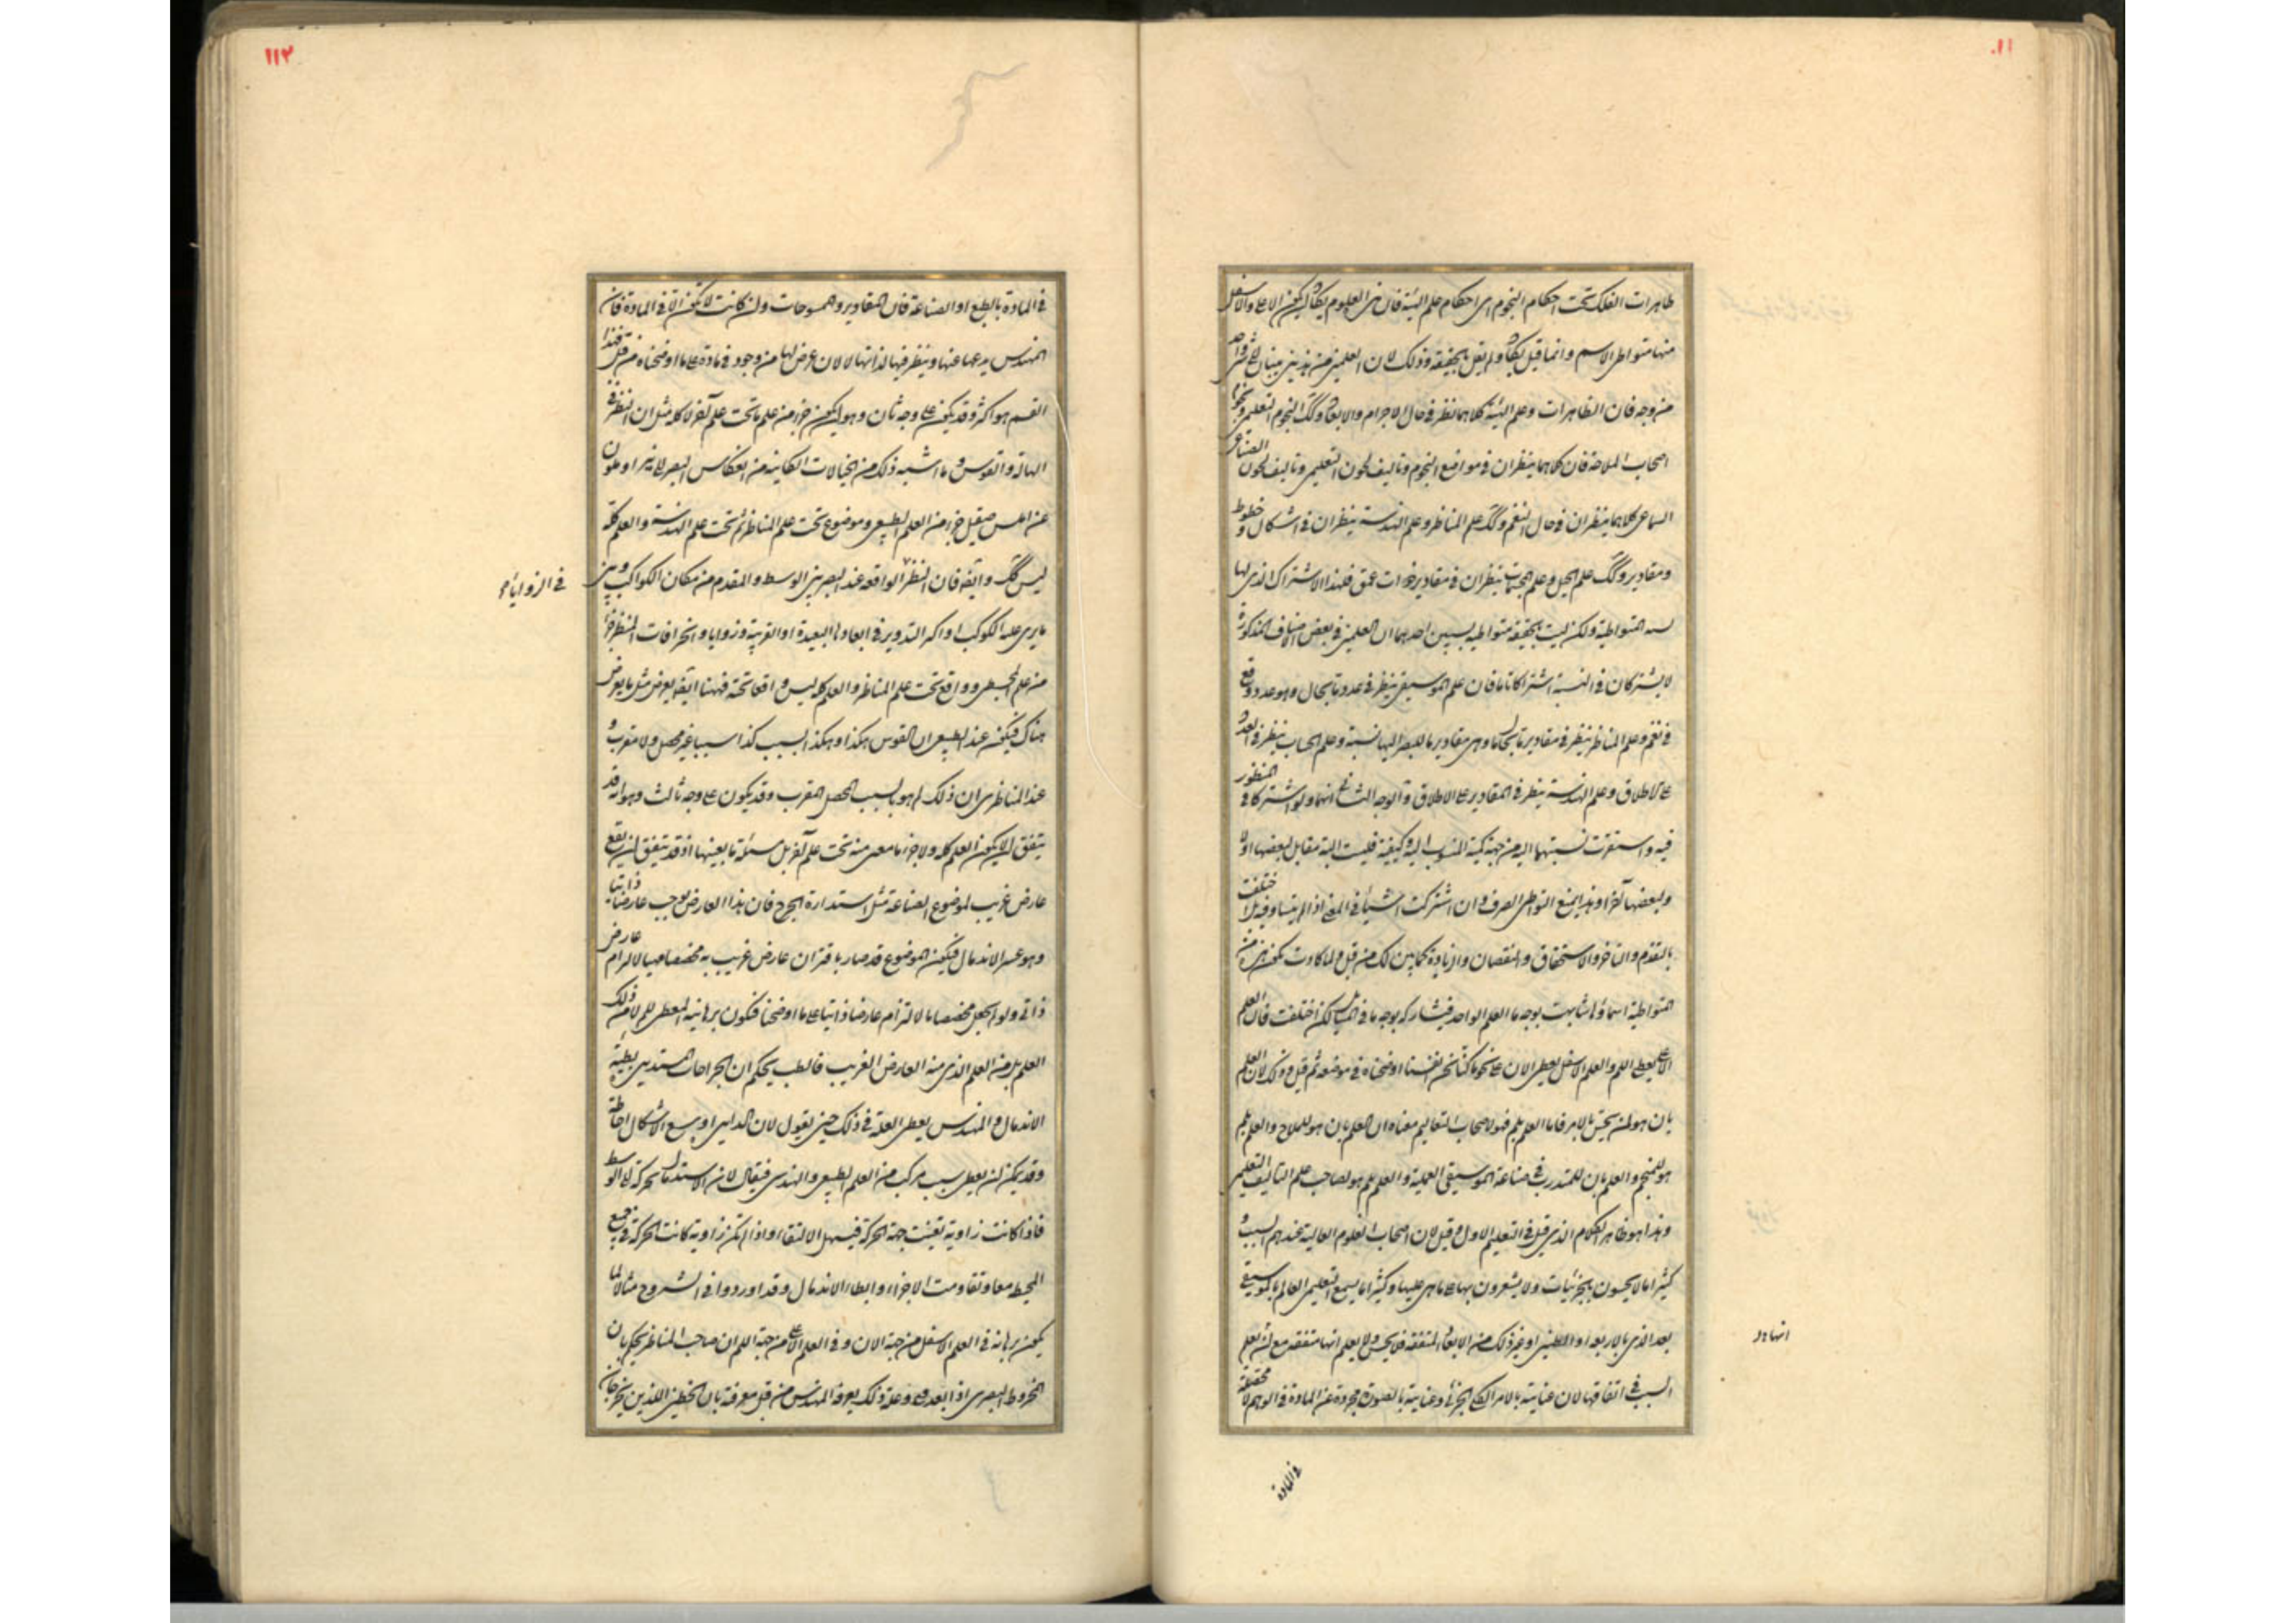 ١١٠
ظاهرات الفلك تحت احكام النجوم اى احكام علم الهيئة فان هذه العلوم يكاد ان يكون الاعلى والاسفل
منها متواطى الاسم وانما قيل يكاد ولم يقل بالحقيقة وذلك لان العلمين من هذين ينسبان الى شىء واحد
من وجه فان الظاهرات وعلم الهيئة كلاهما نظر فى حال الاجرام والابعاد وكك النجوم التعليمى ونجوم
اصحاب الملاحة فان كلاهما ينظران فى مواضع النجوم وتاليف اللحون التعليمى وتاليف اللحون
السماعى كلاهما ينظران فى حال النغم وكك علم المناظر وعلم الهندسة ينظران فى اشكال وخطوط
ومقادير وكك علم الحيل وعلم المجسمات ينظران فى مقادير ذوات عمق فلهذا الاشتراك الذى لها
المتواطية ولكن ليست بالحقيقة متواطية لسببين احدهما ان العلمين فى بعض الاصناف المذكورة
لا يشتركان فى النسبة اشتراكا تاما فان علم الموسيقى ينظر فى عدد ما بحال وهو عدد وقع
فى نغم وعلم المناظر ينظر فى مقادير ما بحال ما وهى مقادير ما للبصر اليها نسبة وعلم الحساب ينظر فى العدد
على الاطلاق وعلم الهندسة ينظر فى المقادير على الاطلاق والوجه الثانى انهما ولو اشتركا فى المنظور
فيه واستقرت نسبتهما اليه من جهة كمية المنسوب اليه وكيفيته فليست البتة مقابل لبعضها اولا
ولبعضها آخرا وهذا يمنع التواطى الصرف وان اشتركت اشياء فى المعنى اذا لم يتساو فيه بل اختلفت
بالتقدم والتاخر والاستحقاق والنقصان والزيادة كما بين لك من قبل ولما كادت تكون هذه من
المتواطية اسماؤها شابهت بوجه ما العلم الواحد فيشاركه بوجه ما فى المسائل لكن اختلفت فان العلم
الاعلى يعطى اللم والعلم الاسفل يعطى الان على نحو ما كنا نحن انفسنا اوضحناه فى موضعه ثم قيل وذلك لان العلم
بان هو لمن يحس بالامر فاما العلم بلم فهو لاصحاب التعاليم معناه ان العلم بان هو للملاح والعلم بلم
هو للمنجم والعلم بان للمتدرب فى صناعة الموسيقى العملية والعلم بلم هو لصاحب علم التاليف التعليمى
وهذا هو ظاهر الكلام الذى قيل فى التعليم الاول وقيل لان اصحاب العلوم العالية عندهم السبب و
كثيرا ما لا يحسون بالجزئيات ولا يشعرون بها على ما هى عليها وكثيرا ما يسمع التعليمى العالم بالموسيقى
بعد الذى بالاربعة او الطنينى او غير ذلك من الابعاد المتفقة فلا يحس ولا يعلم انها متفقة مع انه يعلم
السبب فى اتفاقها لان عنايته بالامر الكلى لا الجزئى وعنايته بالصورة مجردة عن المادة فى الوهم لا محققة
انها دل
فى المادة
١١٢
فى المادة بالطبع او الصناعة فان المقادير والممسوحات وان كانت لا تكون الا فى المادة فان
المهندس يدعها عنها وينظر فيها لذاتها لا لان عرض لها من وجود فى مادة على ما اوضحناه من قبل فهذا
القسم هو اكثر وقد يكون على وجه ثان وهو ان يكون جزء من علم ما تحت علم آخر لا كله مثل ان النظر فى
الهالة والقوس وما اشبه ذلك من الخيالات الكائنة من انعكاس البصر الى نير او ملون
عن املس صقيل جزء من العلم الطبيعى وموضوع تحت علم المناظر ثم تحت علم الهندسة والعلم كله
ليس كك وايضا فان النظر الواقعة عند البصر بين الوسط والمقدم من مكان الكواكب وبين
ما يرى عليه الكوكب او اكر التدوير فى ابعادها البعيدة او القريبة وزوايا وانحرافات المنظر جزء
من علم المجسطى وواقع تحت علم المناظر والعلم كله ليس واقعا تحته فههنا ايضا يعرض مثل ما يعرض
هناك فيكون عند الطبيعى ان القوس هكذا وهكذا لسبب كذا سببا غير محصل ولا مقرب و
عند المناظرى ان ذلك لم هو بالسبب المحصل المقرب وقد يكون على وجه ثالث وهو انه قد
يتفق ان لا يكون العلم كله ولا جزء ما معين منه تحت علم آخر بل مسئلة ما بعينها اذ قد يتفق ان يقع
عارض غريب لموضوع الصناعة مثل استدارة الجرح فان هذا العارض يوجب عارضا ذاتيا
وهو عسر الاندمال فيكون الموضوع قد صار باقتران عارض غريب به مخصصا مهيا لالزام عارض
ذاتى ولو لم يجعل مخصصا ما لالتزام عارضا ذاتيا على ما اوضحنا فيكون برهانه المعطى للم لا من ذلك
العلم بل من العلم الذى منه العارض الغريب فالطب يحكم ان الجراحات المستديرة بطيئة
الاندمال والمهندس يعطى العلة فى ذلك حين يقول لان الدائرة اوسع الاشكال احاطة
وقد يمكن ان يعطى سبب مركب من العلم الطبيعى والهندسى فيقال لان الاندمال حركة الى الوسط
فاذا كانت زاوية تعينت جهة الحركة فيسهل الالتقاء واذا لم تكن زاوية كانت الحركة فى جميع
المحيط معا وتقاومت الاجزاء وابطاء الاندمال وقد اوردوا فى الشروح مثالا لما
يكون برهانه فى العلم الاسفل من جهة الان وفى العلم الاعلى من جهة اللم ان صاحب المناظر يحكم بان
المخروط البصرى اذا بعد فنى وعلة ذلك يعرفه المهندس من قبل معرفته بان الخطين اللذين يخرجان
فى الزوايا